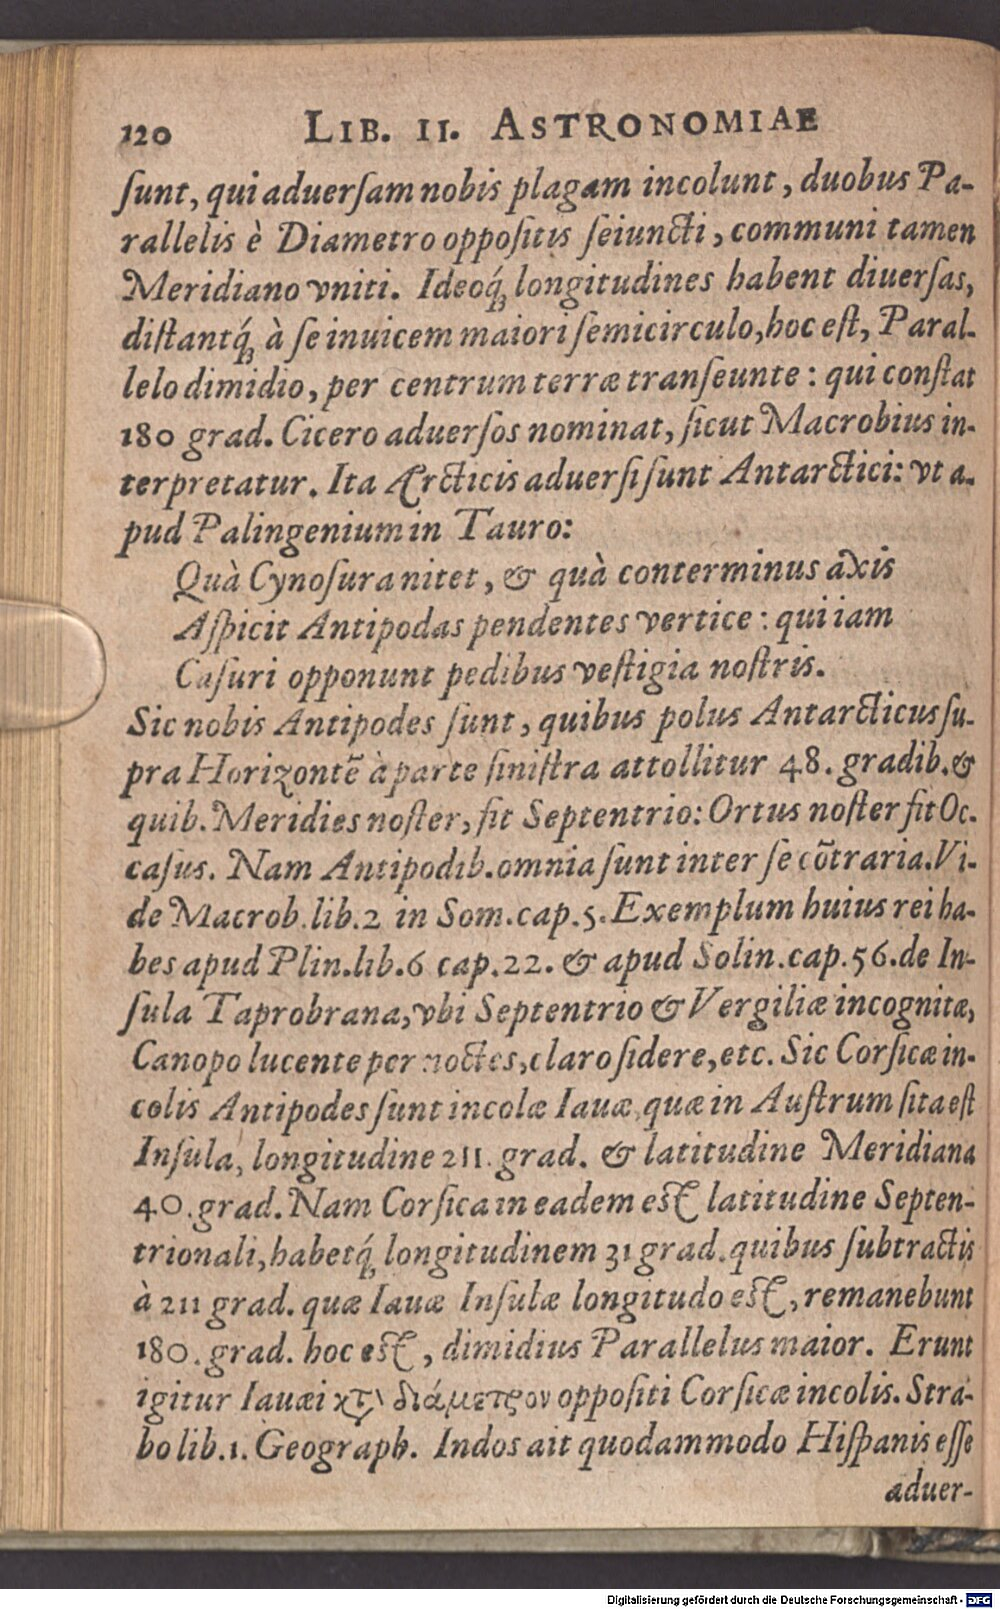 120 LIB. II. ASTRONOMIAE
ſunt, qui aduerſam nobis plagam incolunt, duobus Pa-
rallelis è Diametro oppoſitis ſeiuncti, communi tamen
Meridiano vniti. Ideoq́ꝫ longitudines habent diuerſas,
diſtantq́ꝫ à ſe inuicem maiori ſemicirculo, hoc eſt, Paral-
lelo dimidio, per centrum terræ tranſeunte: qui conſtat
180 grad. Cicero aduerſos nominat, ſicut Macrobius in-
terpretatur. Ita Arcticis aduerſi ſunt Antarctici: vt a-
pud Palingenium in Tauro:
Quà Cynoſura nitet, & quà conterminus axis
Aſpicit Antipodas pendentes vertice: qui iam
Caſuri opponunt pedibus veſtigia noſtris.
Sic nobis Antipodes ſunt, quibus polus Antarcticus ſu-
pra Horizontē à parte ſiniſtra attollitur 48. gradib. &
quib. Meridies noſter, fit Septentrio: Ortus noſter fit Oc-
caſus. Nam Antipodib. omnia ſunt inter ſe cōtraria. Vi-
de Macrob. lib. 2 in Som. cap. 5. Exemplum huius rei ha-
bes apud Plin. lib. 6 cap. 22. & apud Solin. cap. 56. de In-
ſula Taprobrana, vbi Septentrio & Vergiliæ incognitæ,
Canopo lucente per noctes, claro ſidere, etc. Sic Corſicæ in-
colis Antipodes ſunt incolæ Iauæ, quæ in Auſtrum ſita eſt
Inſula, longitudine 211. grad. & latitudine Meridiana
40. grad. Nam Corſica in eadem eſt latitudine Septen-
trionali, habetq́ꝫ longitudinem 31 grad. quibus ſubtractis
à 211 grad. quæ Iauæ Inſulæ longitudo eſt, remanebunt
180. grad. hoc eſt, dimidius Parallelus maior. Erunt
igitur Iauæi κτ̀ διάμετρον oppoſiti Corſicæ incolis. Stra-
bo lib. 1. Geograph. Indos ait quodammodo Hiſpanis eſſe
aduer-
Digitalisierung gefördert durch die Deutsche Forschungsgemeinschaft - DFG